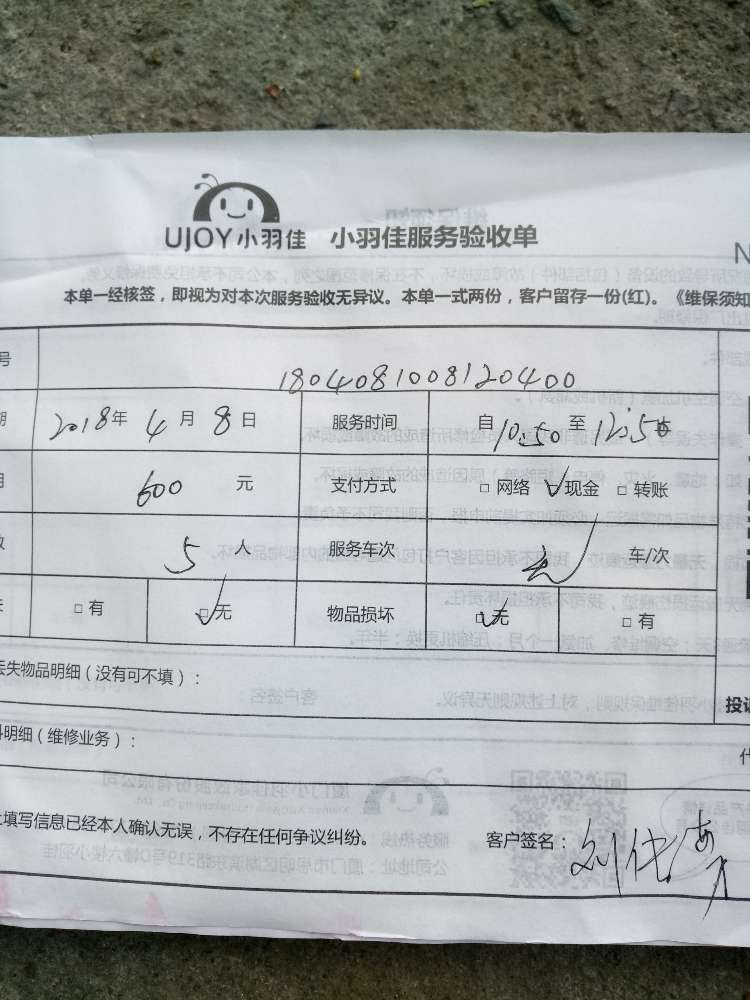 UJOY小羽佳 小羽佳服务验收单
N
本单一经核签，即视为对本次服务验收无异议。本单一式两份，客户留存一份(红)。《维保须知
号
1804081008120400
期 2018年 4月 8日 服务时间 自10:50至12:50
600 元 支付方式 □ 网络 □ 现金 □ 转账
数 5 人 服务车次 无 车/次
□ 有 □ 无 物品损坏 □ 无 □ 有
丢失物品明细（没有可不填）：
投诉
料明细（维修业务）：
上填写信息已经本人确认无误，不存在任何争议纠纷。 客户签名：